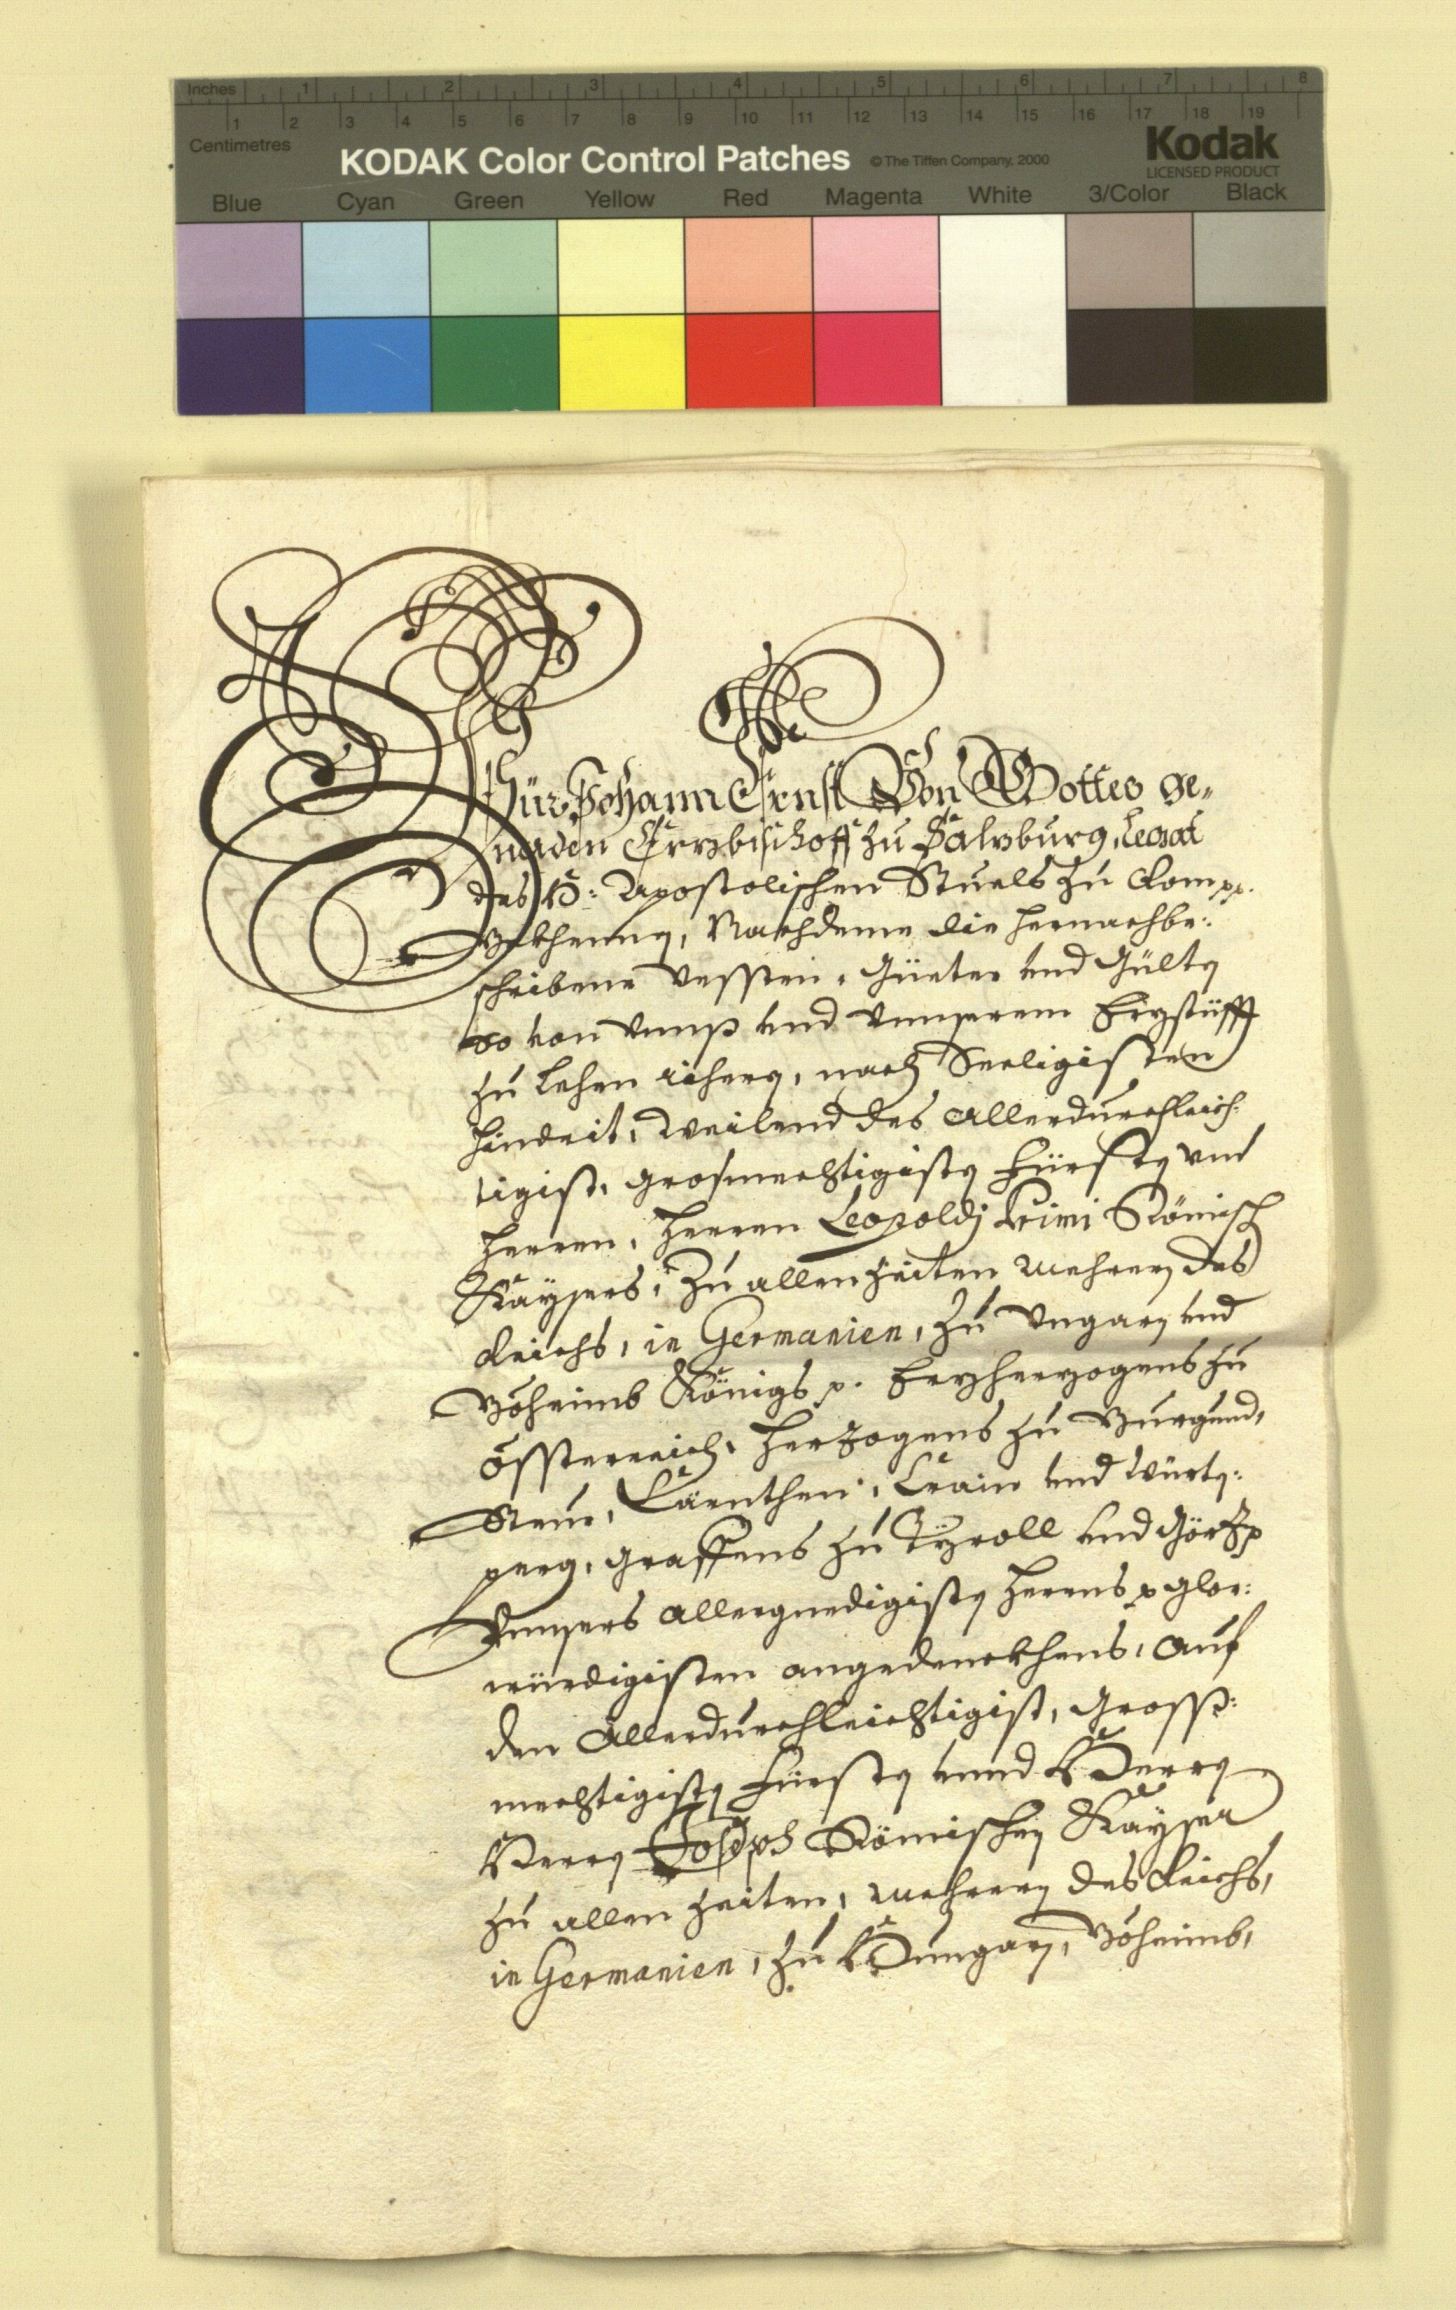 Inches 1 2 3 4 5 6 7 8
1 2 3 4 5 6 7 8 9 10 11 12 13 14 15 16 17 18 19
Centimetres
KODAK Color Control Patches © The Tiffen Company, 2000
Kodak
LICENSED PRODUCT
Blue Cyan Green Yellow Red Magenta White 3/Color Black
Wür Johann Ernst Von Gottes ge„
naden Erzbischoff zu Salzburg, Legat
des H: Apostolischen Stuels zu Rom
Bekhennen, Nachdeme die hernachbe:
schribene Vessten, Güeter und Gülten
so von Unnß und Unnserem Erzstüfft
zu Lehen riheren, nach Seeligisten
hindrit, Weilend des Allerdurchleich:
tigist, Grosmechtigisten Fürsten und
Herren, Herren Leopoldj Primi Römisch
Kaysers, Zu allen Zeiten Mehrern des
Reichs, in Germanien, Zu Ungarn und
Böheimb Königs p. Erzherzogens zu
Össterreich, Herzogens zu Burgund,
Steur, Cärnthen, Crain und Würten:
perg, Graffens zu Tyroll und Görz p
Unnsers Allergnedigisten Herrens p glor:
würdigisten angedenckhens, Auf
den Allerdurchleichtigist, Gross:
mechtigisten Fürsten unnd Herrn
Herrn Joseph Römischen Kayser
zu allen Zeiten, Mehrern des Reichs,
in Germanien, zu Hungarn, Böheimb,